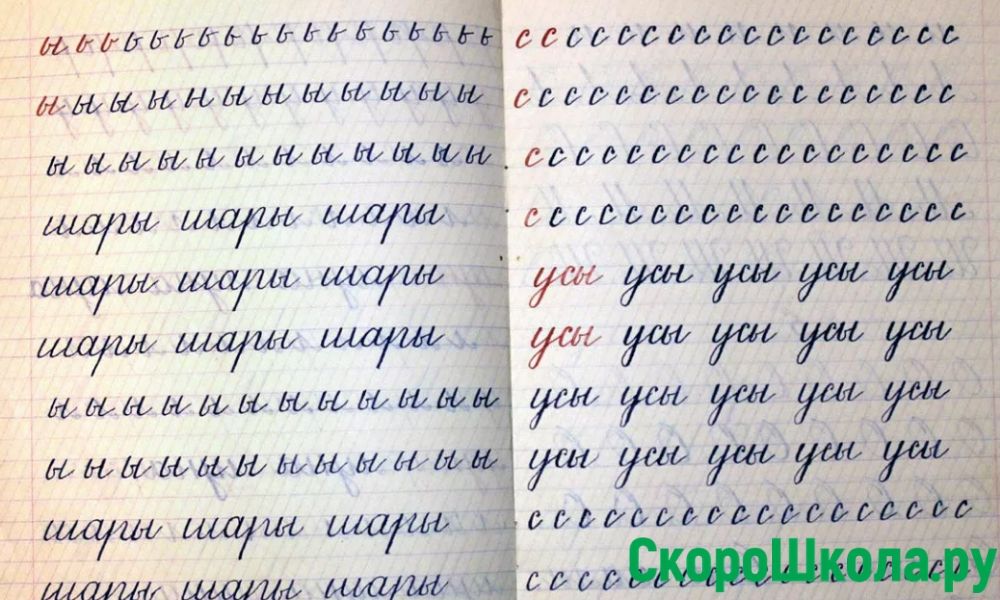 ы ь ь ь ь ь ь ь ь ь ь ь ь ь ь ь ь ь
ы ы ы ы ы ы ы ы ы ы ы ы
ы ы ы ы ы ы ы ы ы ы ы ы
шары шары шары
шары шары шары
шары шары шары
ы ы ы ы ы ы ы ы ы ы ы ы
ы ы ы ы ы ы ы ы ы ы ы ы
шары шары шары
шары шары шары
с с с с с с с с с с с с с с с с с с
с с с с с с с с с с с с с с с с с с
с с с с с с с с с с с с с с с с с с
с с с с с с с с с с с с с с с с с с
усы усы усы усы усы
усы усы усы усы усы
усы усы усы усы усы
усы усы усы усы усы
с с с с с с с с с с с с с с с с с с
с с с с
СкороШкола.ру